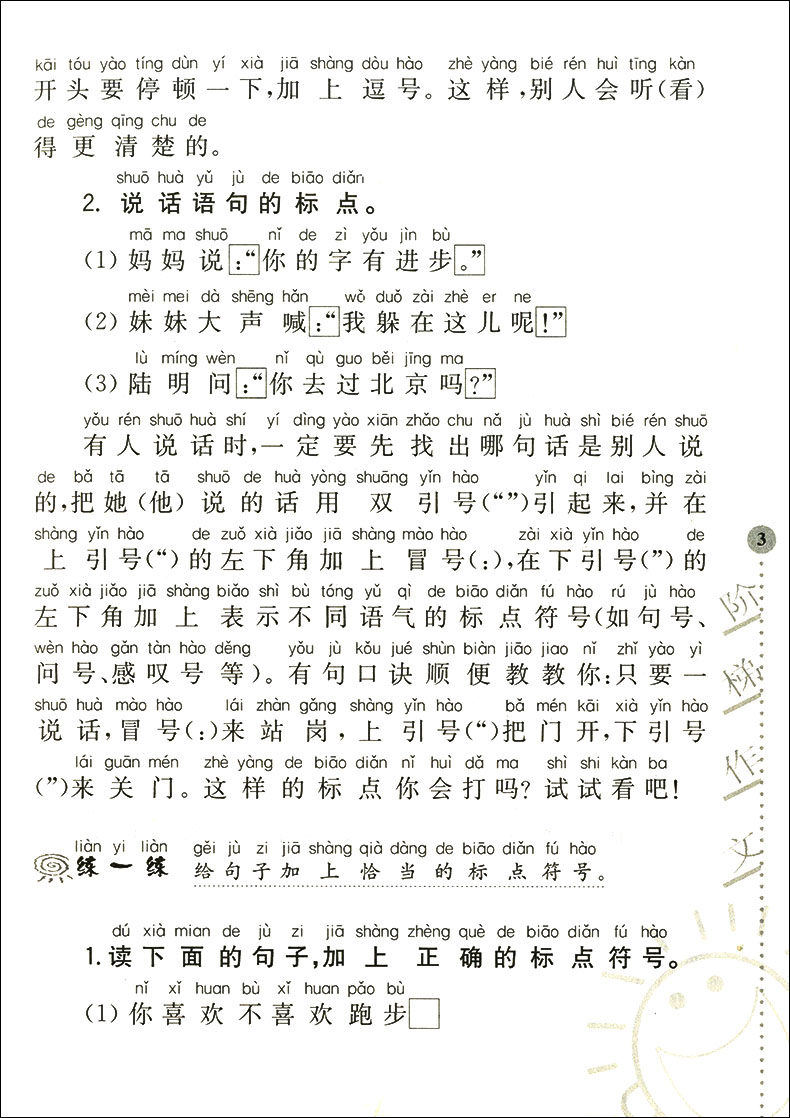 kāi tóu yào tíng dùn yí xià jiā shàng dòu hào zhè yàng bié rén huì tīng kàn
开头要停顿一下,加上逗号。这样,别人会听(看)
de gèng qīng chu de
得更清楚的。
shuō huà yǔ jù de biāo diǎn
2. 说话语句的标点。
mā ma shuō nǐ de zì yǒu jìn bù
(1) 妈妈说:“你的字有进步。”
mèi mei dà shēng hǎn wǒ duǒ zài zhè er ne
(2) 妹妹大声喊:“我躲在这儿呢!”
lù míng wèn nǐ qù guo běi jīng ma
(3) 陆明问:“你去过北京吗?”
yǒu rén shuō huà shí yí dìng yào xiān zhǎo chu nǎ jù huà shì bié rén shuō
有人说话时,一定要先找出哪句话是别人说
de bǎ tā tā shuō de huà yòng shuāng yǐn hào yǐn qi lai bìng zài
的,把她(他)说的话用双引号(“”)引起来,并在
shàng yǐn hào de zuǒ xià jiǎo jiā shàng mào hào zài xià yǐn hào de
上引号(“)的左下角加上冒号(:),在下引号(”)的
zuǒ xià jiǎo jiā shàng biǎo shì bù tóng yǔ qì de biāo diǎn fú hào rú jù hào
左下角加上表示不同语气的标点符号(如句号、
wèn hào gǎn tàn hào děng yǒu jù kǒu jué shùn biàn jiāo jiao nǐ zhǐ yào yì
问号、感叹号等)。有句口诀顺便教教你:只要一
shuō huà mào hào lái zhàn gǎng shàng yǐn hào bǎ mén kāi xià yǐn hào
说话,冒号(:)来站岗,上引号(“)把门开,下引号
lái guān mén zhè yàng de biāo diǎn nǐ huì dǎ ma shì shi kàn ba
(”)来关门。这样的标点你会打吗?试试看吧!
liàn yi liàn gěi jù zi jiā shàng qià dàng de biāo diǎn fú hào
练一练 给句子加上恰当的标点符号。
dú xià mian de jù zi jiā shàng zhèng què de biāo diǎn fú hào
1.读下面的句子,加上正确的标点符号。
nǐ xǐ huan bù xǐ huan pǎo bù
(1) 你喜欢不喜欢跑步□
3
阶梯作文